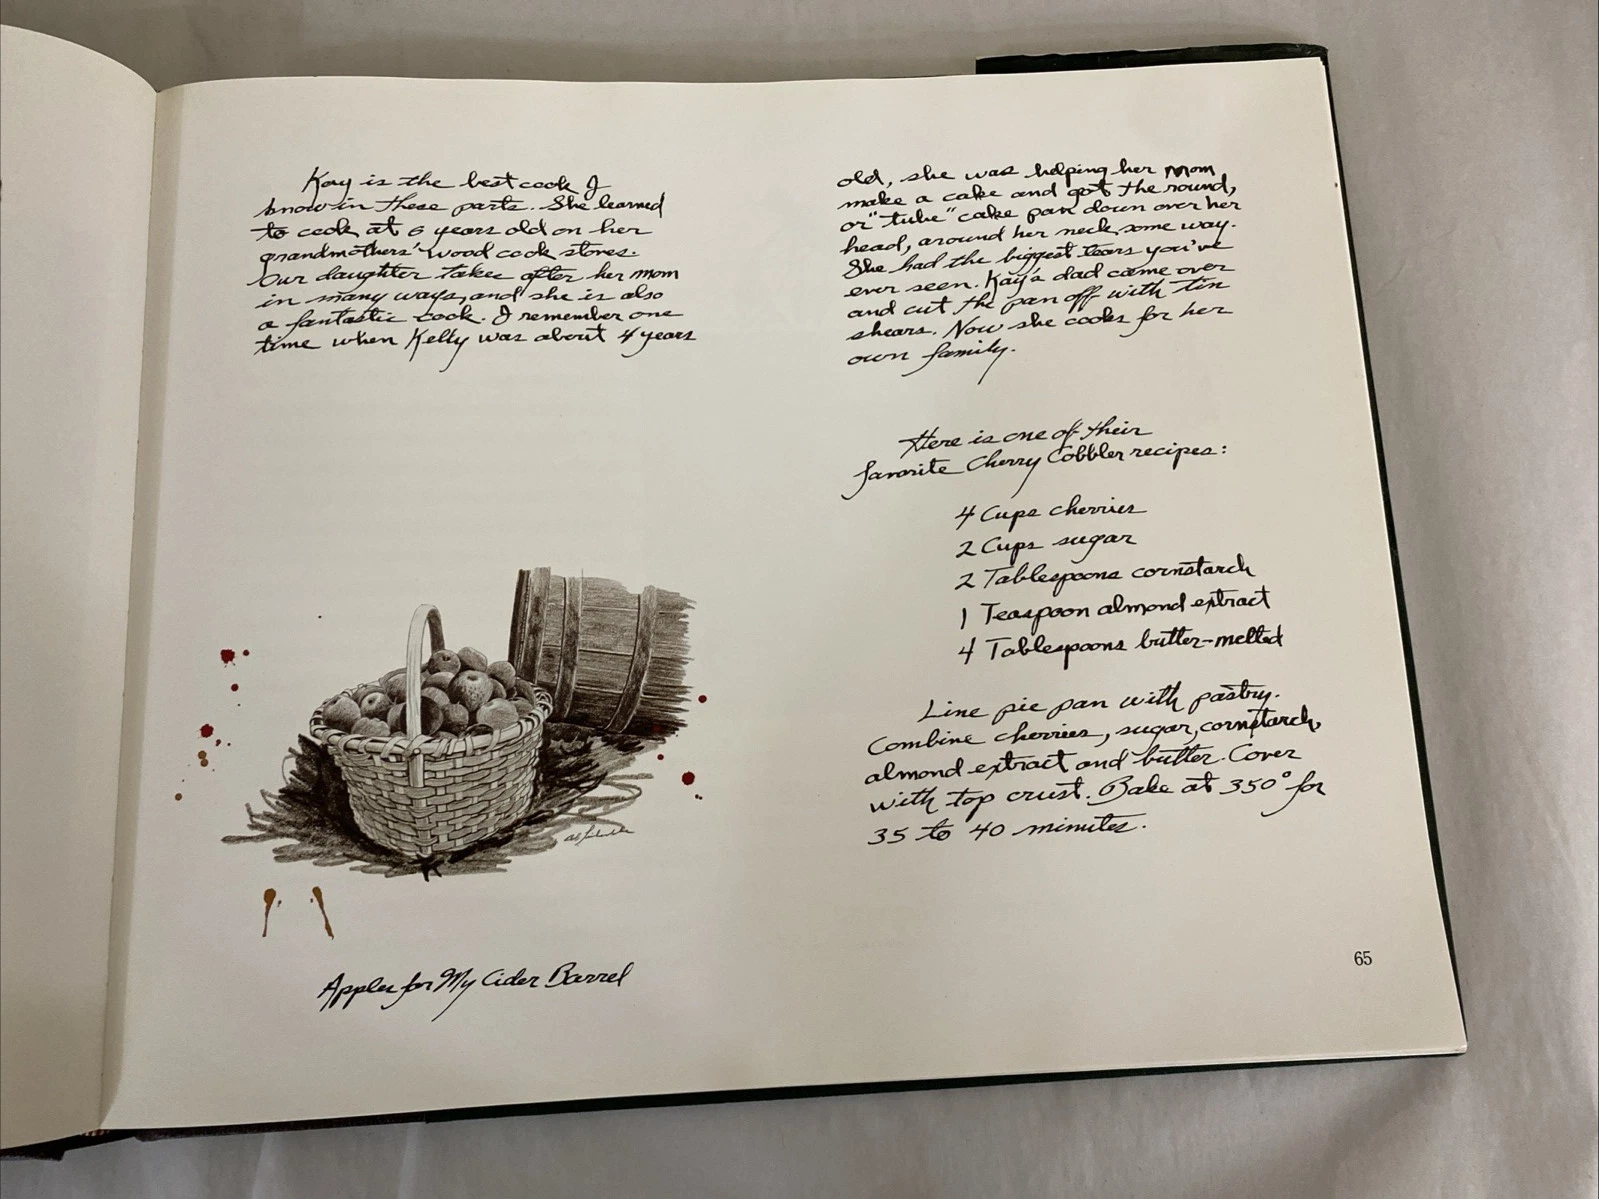 Kay is the best cook I
know in these parts. She learned
to cook at 6 years old on her
grandmothers' wood cook stoves.
Our daughter takes after her mom
in many ways, and she is also
a fantastic cook. I remember one
time when Kelly was about 4 years
Apples for My Cider Barrel
old, she was helping her Mom
make a cake and got the round,
or "tube" cake pan down over her
head, around her neck some way.
She had the biggest tears you've
ever seen. Kay's dad came over
and cut the pan off with tin
shears. Now she cooks for her
own family.
Here is one of their
favorite Cherry Cobbler recipes:
4 Cups cherries
2 Cups sugar
2 Tablespoons cornstarch
1 Teaspoon almond extract
4 Tablespoons butter-melted
Line pie pan with pastry.
Combine cherries, sugar, cornstarch,
almond extract and butter. Cover
with top crust. Bake at 350° for
35 to 40 minutes.
65